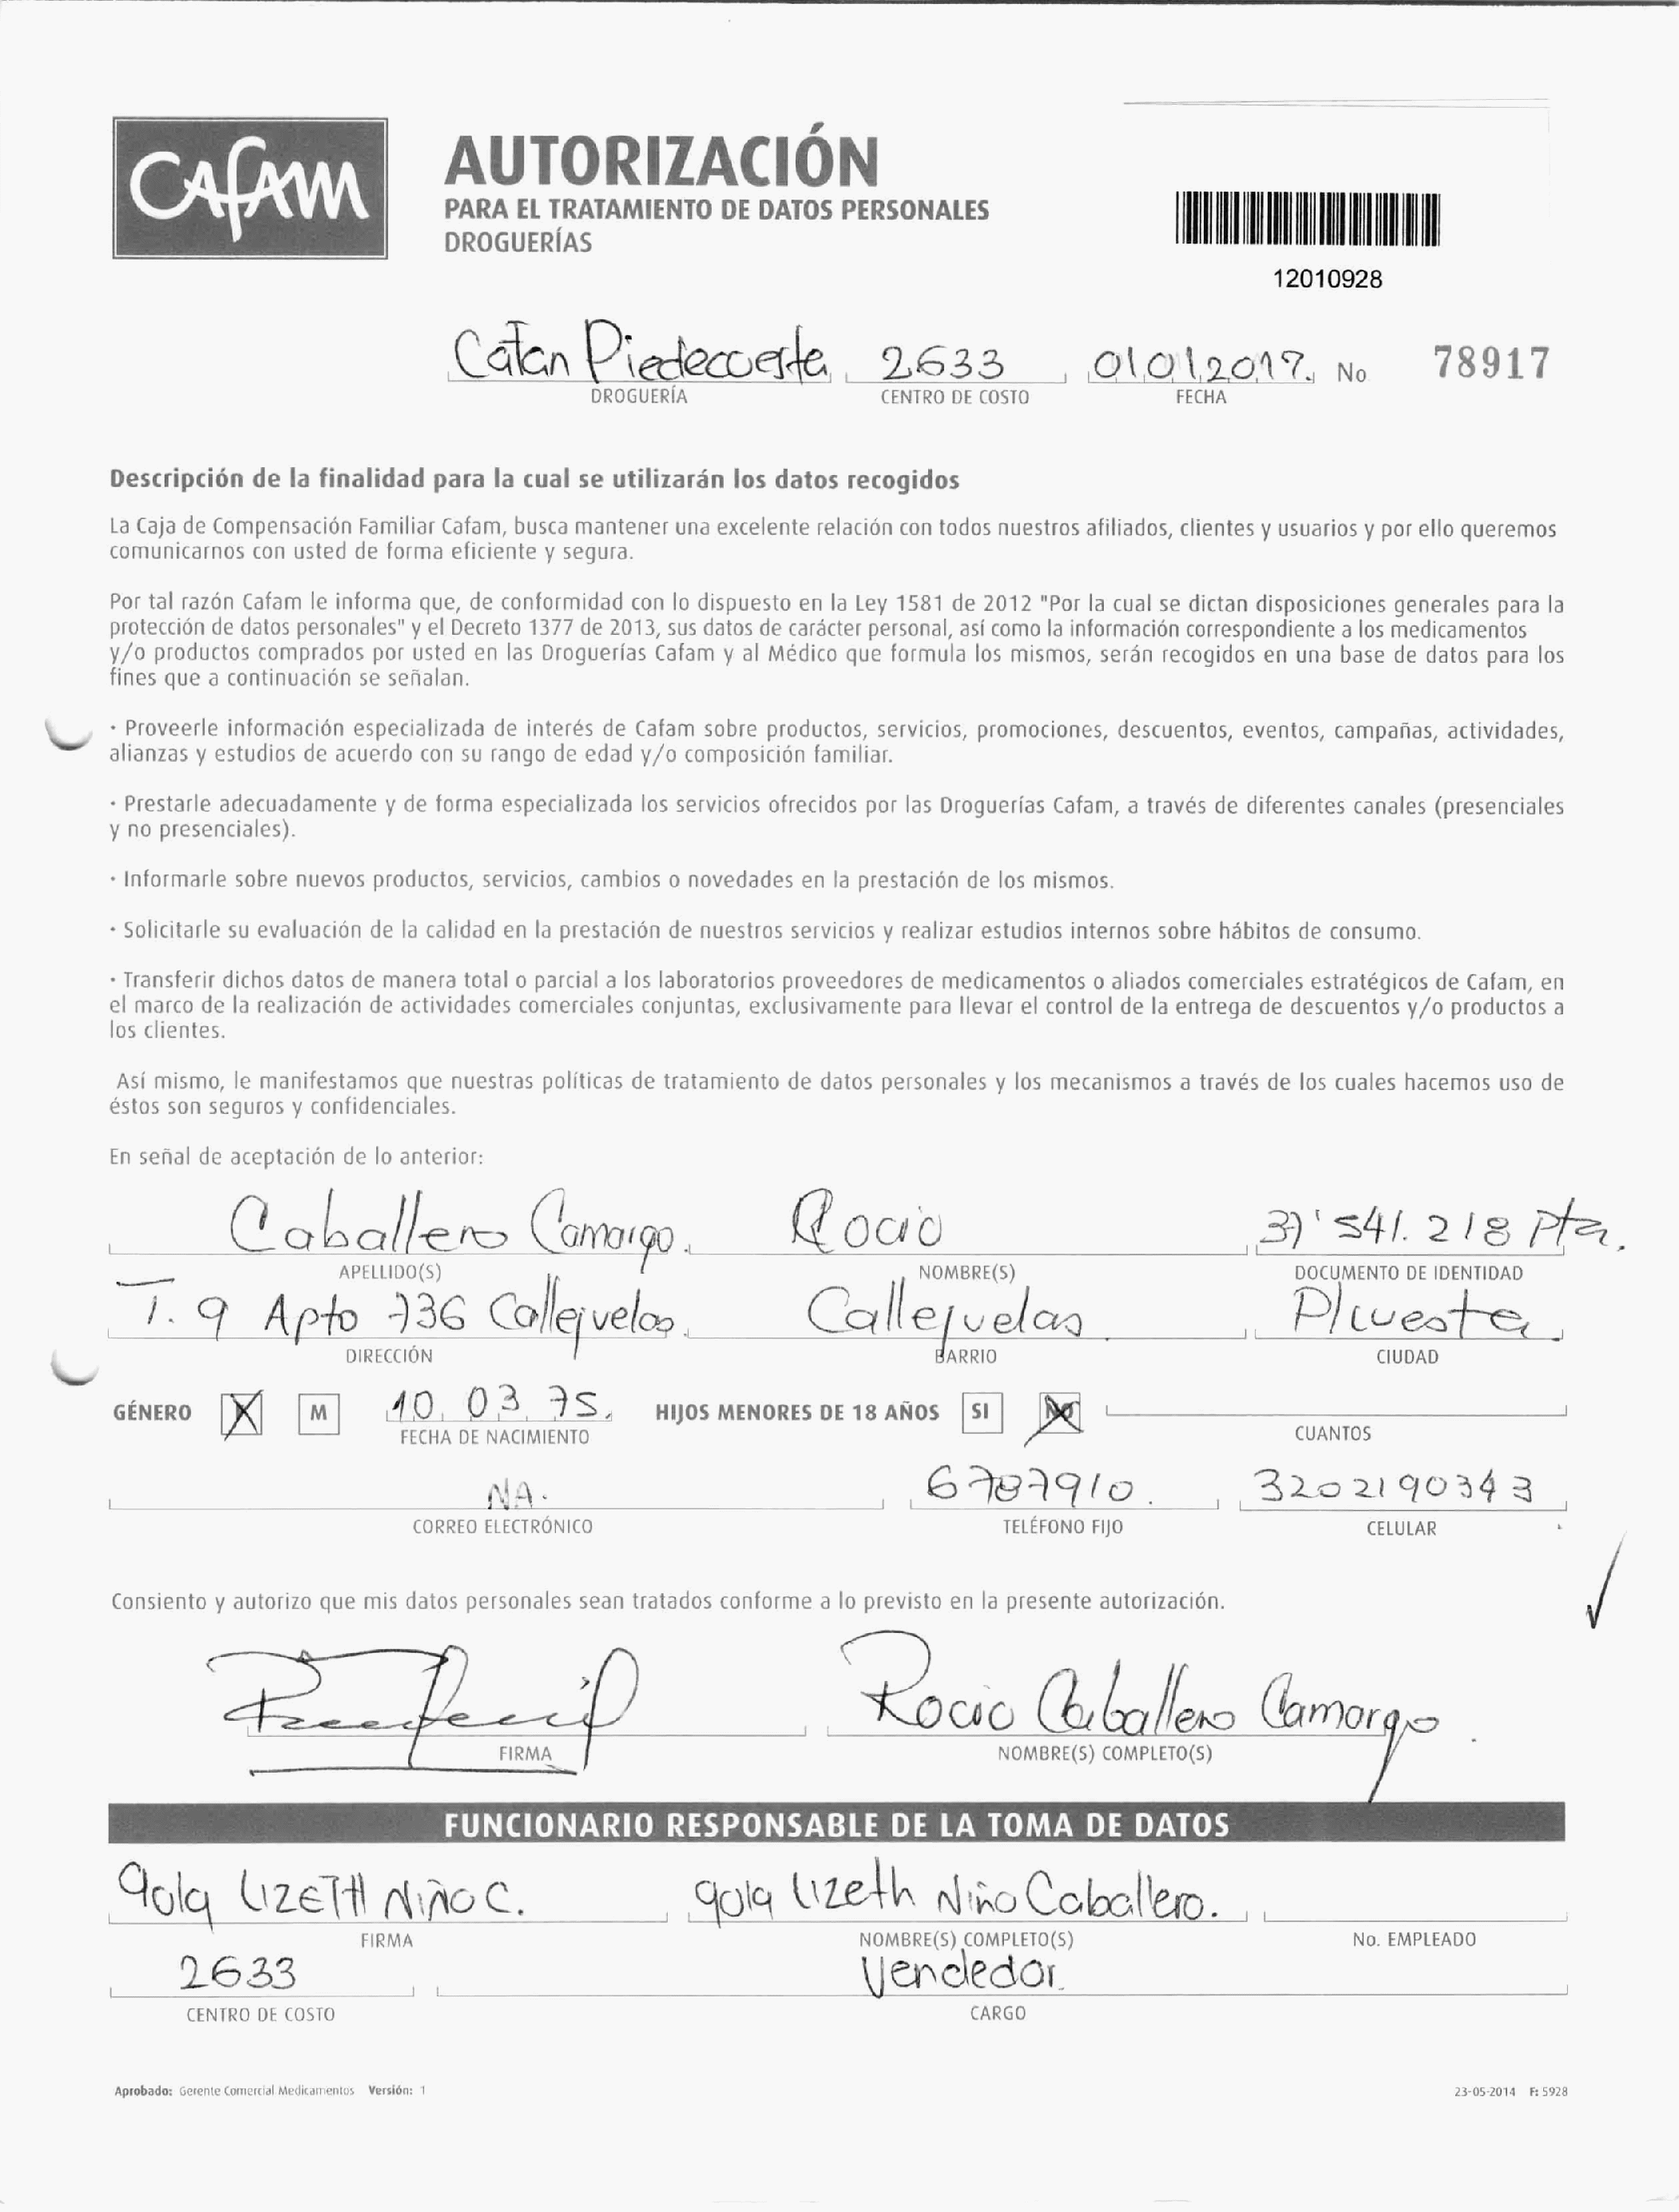 CAFAM
AUTORIZACIÓN
PARA EL TRATAMIENTO DE DATOS PERSONALES
DROGUERÍAS
12010928
Catan Piedecuesta 2633 01012017. No 78917
DROGUERÍA CENTRO DE COSTO FECHA
Descripción de la finalidad para la cual se utilizarán los datos recogidos
La Caja de Compensación Familiar Cafam, busca mantener una excelente relación con todos nuestros afiliados, clientes y usuarios y por ello queremos
comunicarnos con usted de forma eficiente y segura.
Por tal razón Cafam le informa que, de conformidad con lo dispuesto en la Ley 1581 de 2012 "Por la cual se dictan disposiciones generales para la
protección de datos personales" y el Decreto 1377 de 2013, sus datos de carácter personal, así como la información correspondiente a los medicamentos
y/o productos comprados por usted en las Droguerías Cafam y al Médico que formula los mismos, serán recogidos en una base de datos para los
fines que a continuación se señalan.
· Proveerle información especializada de interés de Cafam sobre productos, servicios, promociones, descuentos, eventos, campañas, actividades,
alianzas y estudios de acuerdo con su rango de edad y/o composición familiar.
· Prestarle adecuadamente y de forma especializada los servicios ofrecidos por las Droguerías Cafam, a través de diferentes canales (presenciales
y no presenciales).
· Informarle sobre nuevos productos, servicios, cambios o novedades en la prestación de los mismos.
· Solicitarle su evaluación de la calidad en la prestación de nuestros servicios y realizar estudios internos sobre hábitos de consumo.
· Transferir dichos datos de manera total o parcial a los laboratorios proveedores de medicamentos o aliados comerciales estratégicos de Cafam, en
el marco de la realización de actividades comerciales conjuntas, exclusivamente para llevar el control de la entrega de descuentos y/o productos a
los clientes.
Así mismo, le manifestamos que nuestras políticas de tratamiento de datos personales y los mecanismos a través de los cuales hacemos uso de
éstos son seguros y confidenciales.
En señal de aceptación de lo anterior:
Caballero Camargo. Rocio 37'541.218 Pta.
APELLIDO(S) NOMBRE(S) DOCUMENTO DE IDENTIDAD
T. 9 Apto 736 Callejuelas. Callejuelas P/cuesta
DIRECCIÓN BARRIO CIUDAD
GÉNERO M 10 03 75. HIJOS MENORES DE 18 AÑOS SI NO
FECHA DE NACIMIENTO CUANTOS
NA. 6787910. 3202190343
CORREO ELECTRÓNICO TELÉFONO FIJO CELULAR
Consiento y autorizo que mis datos personales sean tratados conforme a lo previsto en la presente autorización.
Rocio Caballero Camargo
FIRMA NOMBRE(S) COMPLETO(S)
FUNCIONARIO RESPONSABLE DE LA TOMA DE DATOS
LIZETH NIÑO C. Lizeth Niño Caballero.
FIRMA NOMBRE(S) COMPLETO(S) No. EMPLEADO
2633 Vendedor
CENTRO DE COSTO CARGO
Aprobado: Gerente Comercial Medicamentos Versión: 1 23-05-2014 F: 5928